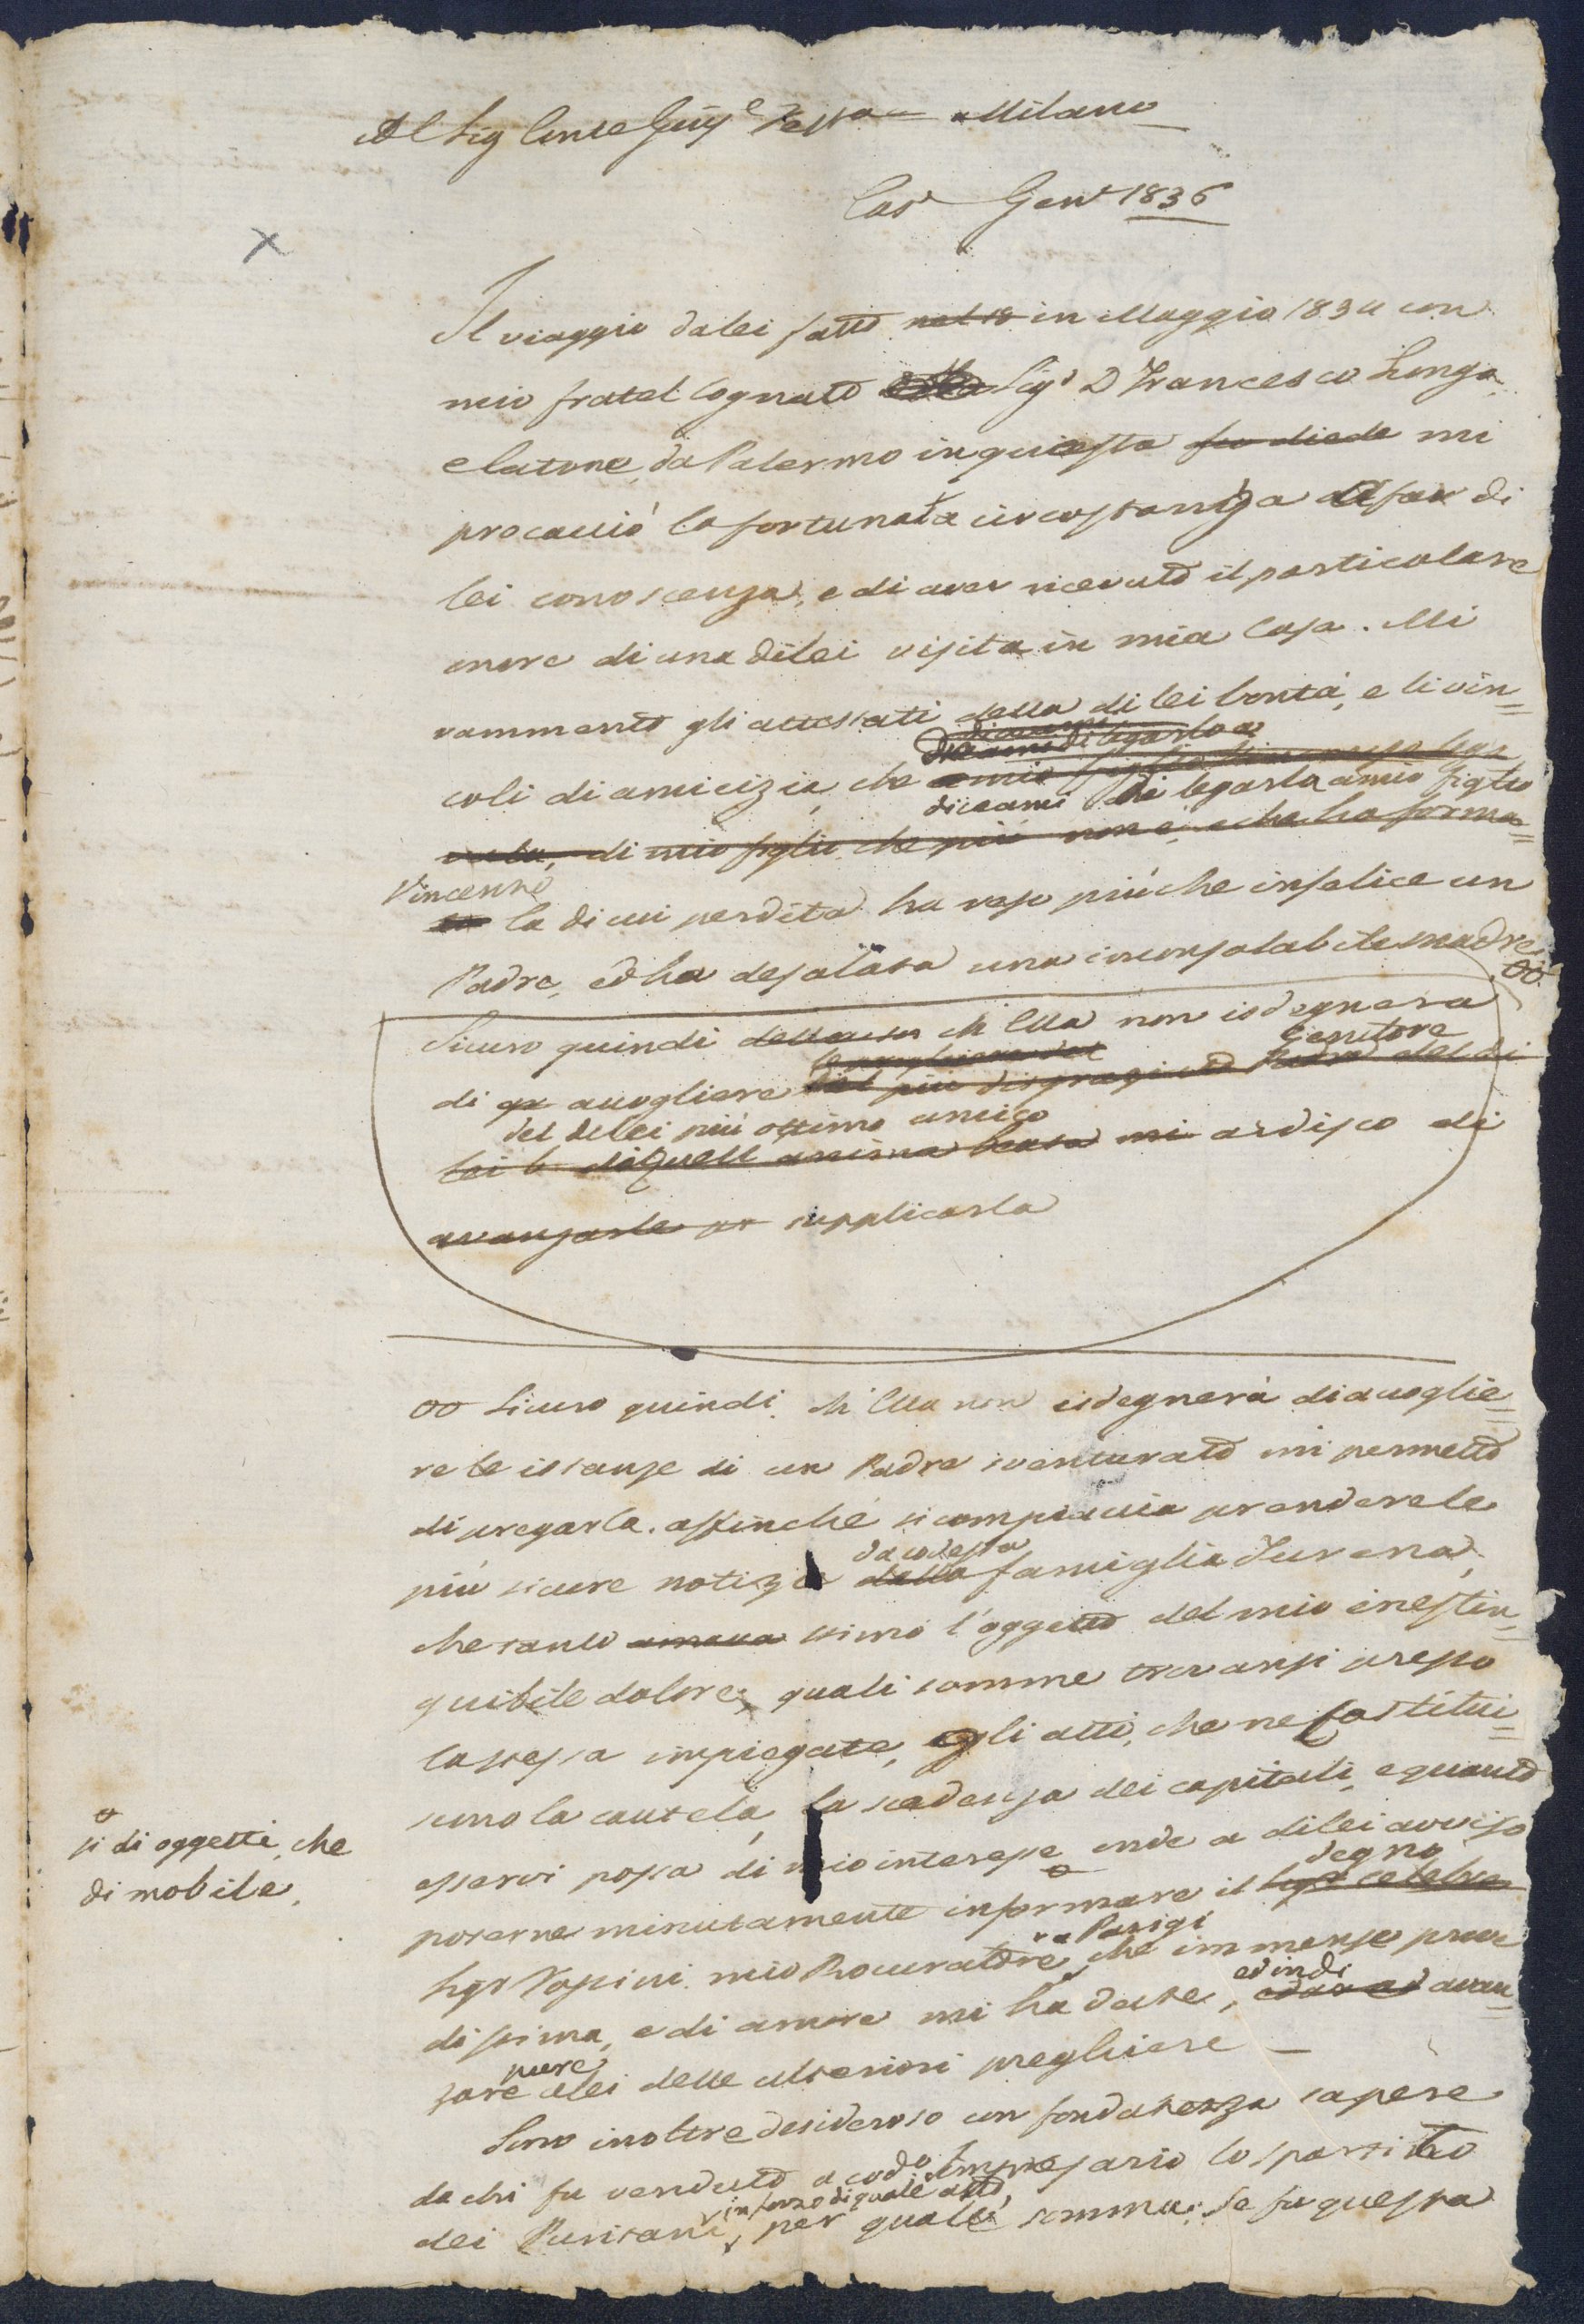 Al Sig Conte Giu^e a Milano
Cat^a Gen^o 1836
Il viaggio da lei fatto nel 18 in Maggio 1834 con
mio fratel Cognato Sig^r D Francesco Longo,
e Catone, da Palermo in questa mi
procacciò la fortunata circostanza di far di
lei conoscenza, e di aver ricevuto il particolare
onore di una di lei visita in mia Casa. Mi
rammento gli attestati della di lei bontà, e li vin=
coli di amicizia, che
diceami di legarla a mio figlio
di mio figlio che più non è, e che ha forma=
Vincenzo
la di cui perdita ha reso più che infelice un
Padre, ed ha desolata una inconsolabile madre
oo
Sicuro quindi ch'Ella non isdegnera
Genitore
di accogliere del più disgraziato Padre del di
del di lei più ottimo amico
lei di quell'anima beata mi ardisco di
avanzarle supplicarla
oo Sicuro quindi, ch'Ella non isdegnerà di accoglie=
re le istanze di un Padre sventurato mi permetto
di pregarla, affinché si compiaccia prendere le
da codesta
più sicure notizie della famiglia Turena,
che tanto amava stimò l'oggetto del mio inestin=
guibile dolore, quali somme trovansi presso
la stessa impiegate, e gli atti, che ne costitui=
scono la cautela, la scadenza dei capitali, e quanto
esservi possa di mio interesse onde a di lei avviso
o
si di oggetti, che
di mobile,
degno
poterne minutamente informare il Sig^r celebre
a Parigi
Sig^r Rossini mio Procuratore, che immense prove
ed indi
di stima, e di amore mi ha date, avan=
pure
zare a lei delle ulteriori preghiere —
Sono inoltre desideroso con fondatezza sapere
da chi fu venduto a cod^o Impresario lo spartito
in forza di quale atto,
dei Puritani, per quale somma; se fu questa